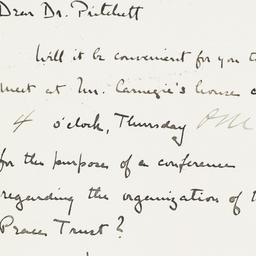 Dear Dr. Pritchett
Will it be convenient for you to
meet at Mr. Carnegie's house
4 o'clock, Thursday
for the purposes of a conference
regarding the organization of
Peace Trust?